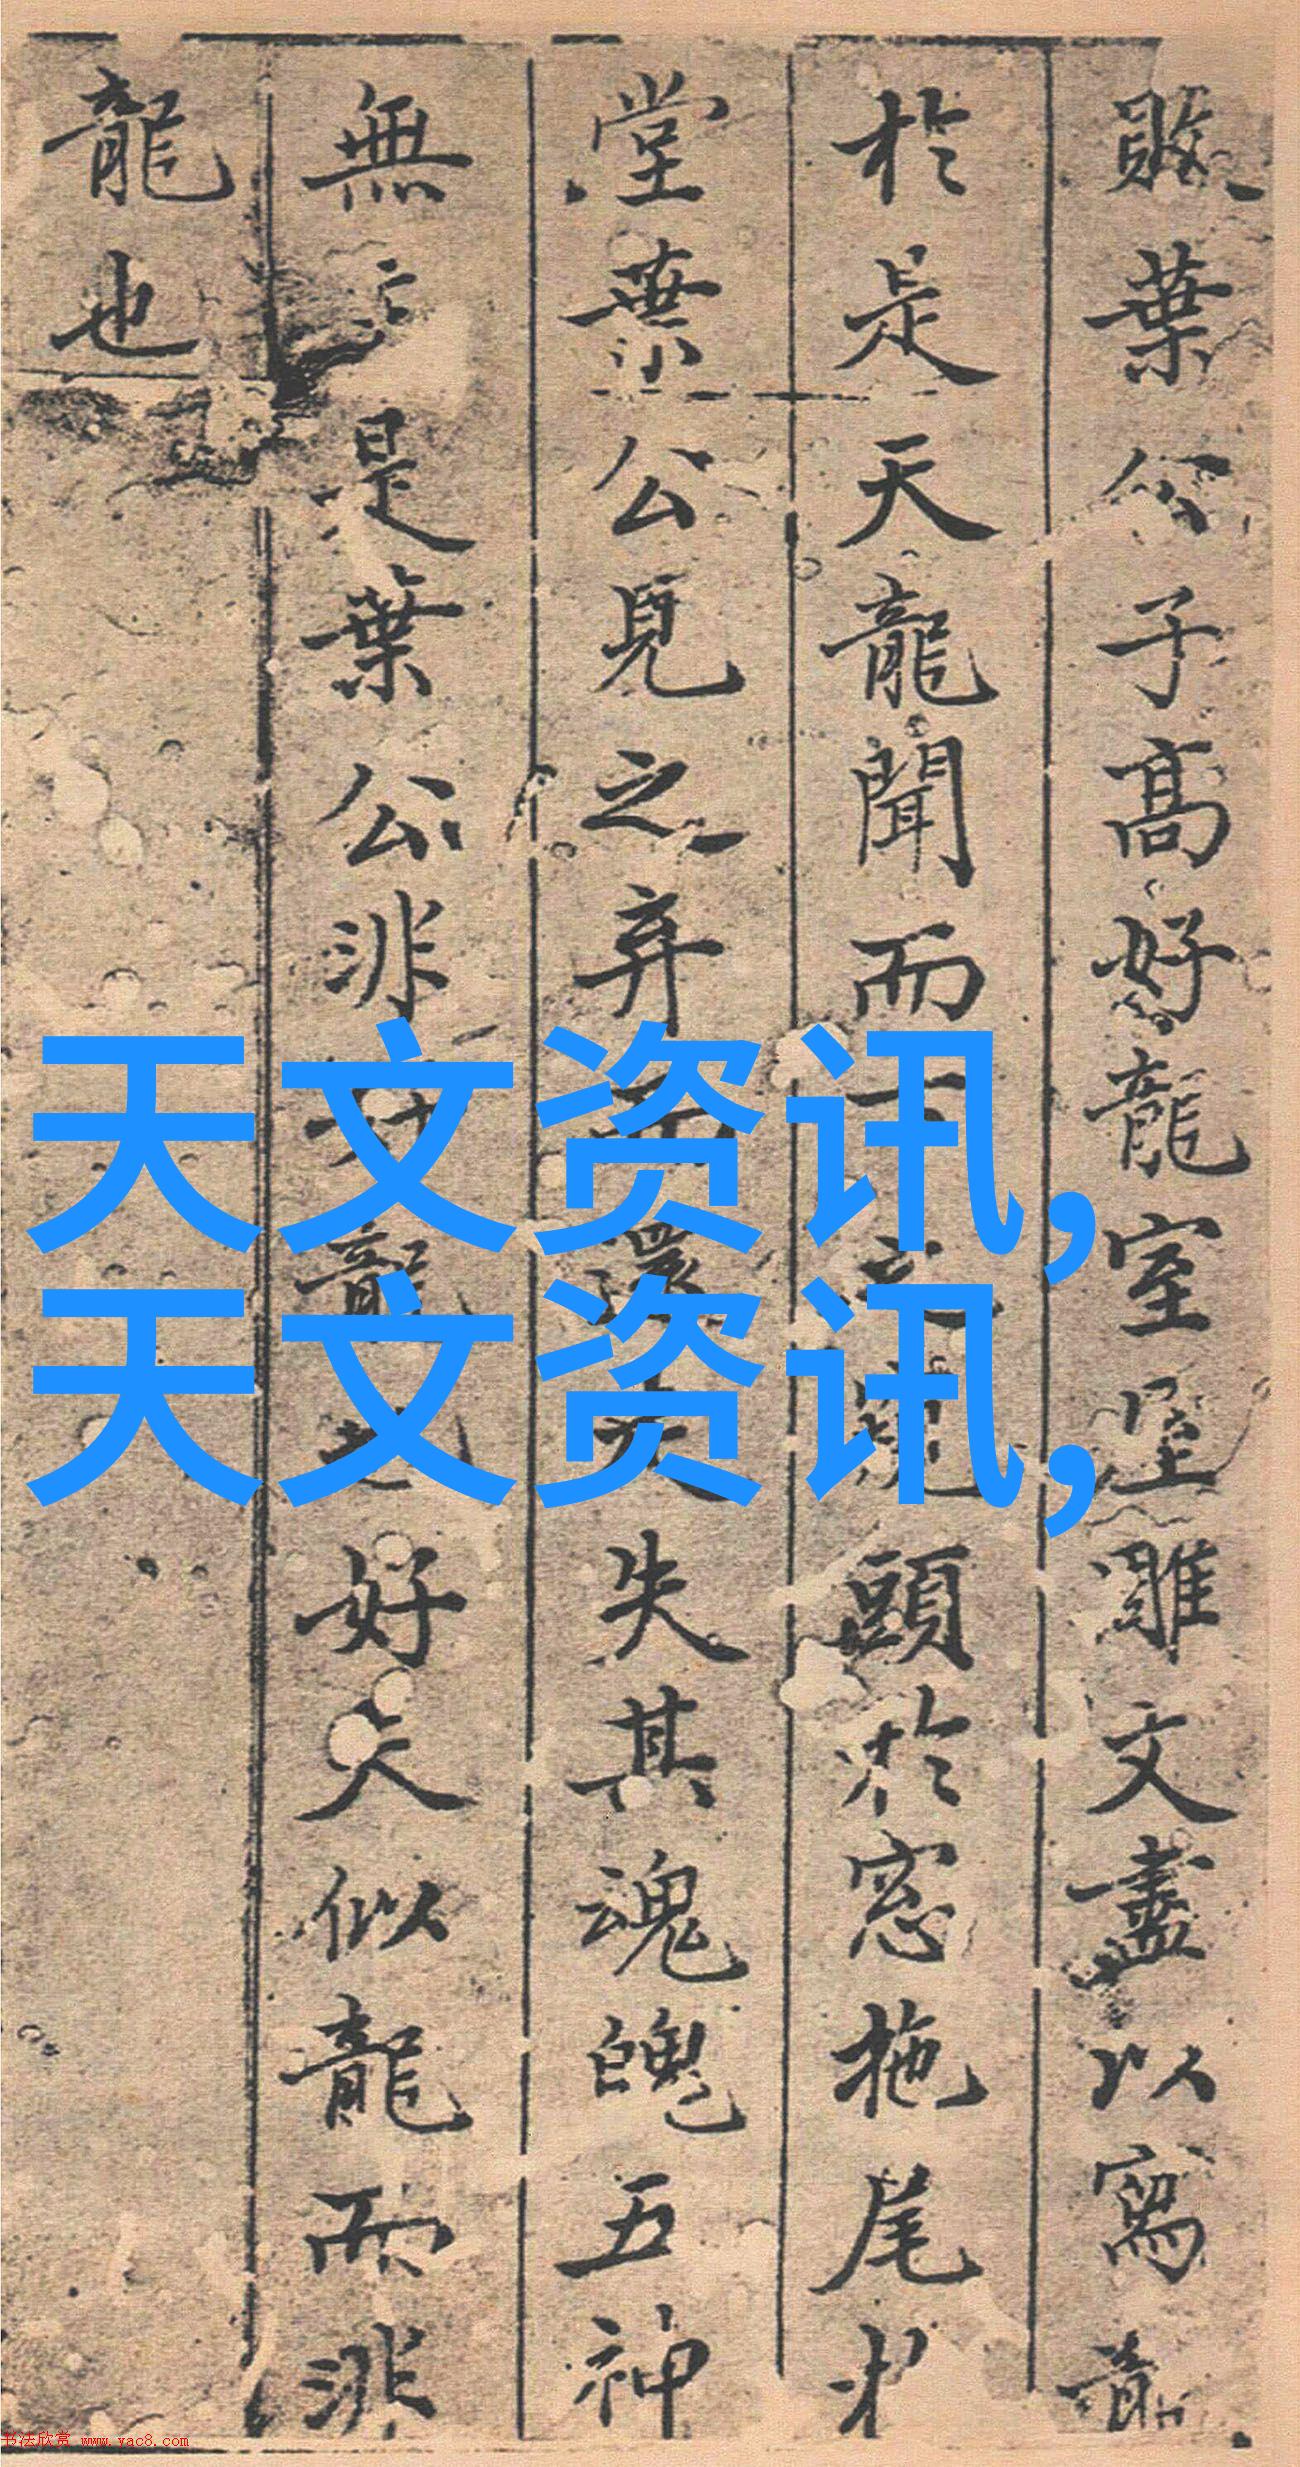 敗葉公子高好龍室屋雕文盡以寫龍
於是天龍聞而下之窺頭於窓拖尾於
堂葉公見之弃而還走失其魂魄五神
無主是葉公非好龍也好夫似龍而非
龍也
天文资讯,
天文资讯,
书法欣赏 www.yac8.com